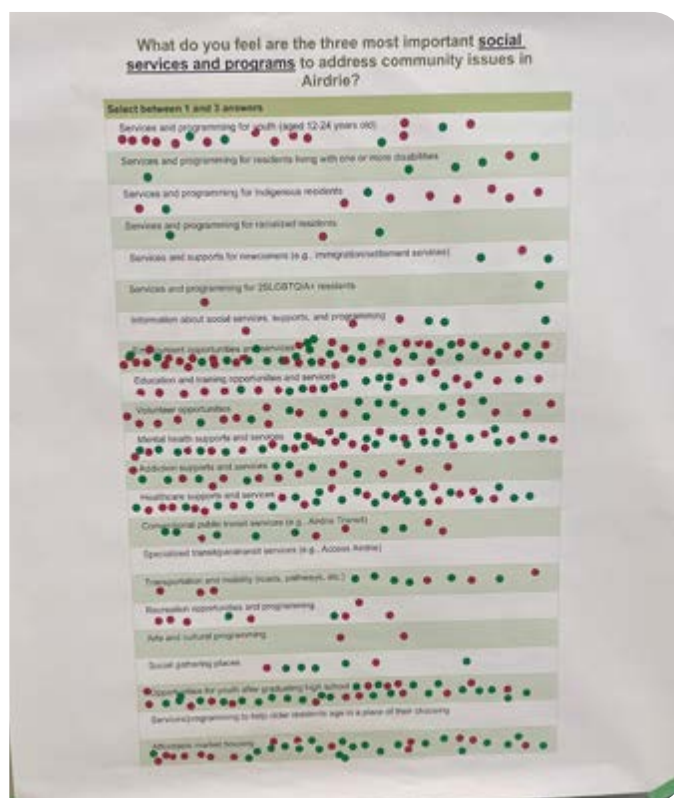 What do you feel are the three most important social
services and programs to address community issues in
Airdrie?
Select between 1 and 3 answers
Services and programming for youth (aged 12-24 years old)
Services and programming for residents living with one or more disabilities
Services and programming for Indigenous residents
Services and programming for racialized residents
Services and supports for newcomers (e.g., immigration/settlement services)
Services and programming for 2SLGBTQIA+ residents
Information about social services, supports, and programming
Employment opportunities and services
Education and training opportunities and services
Volunteer opportunities
Mental health supports and services
Addiction supports and services
Healthcare supports and services
Conventional public transit services (e.g., Airdrie Transit)
Specialized transit/paratransit services (e.g., Access Airdrie)
Transportation and mobility (roads, pathways, etc.)
Recreation opportunities and programming
Arts and cultural programming
Social gathering places
Opportunities for youth after graduating high school
Services/programming to help older residents age in a place of their choosing
Affordable market housing